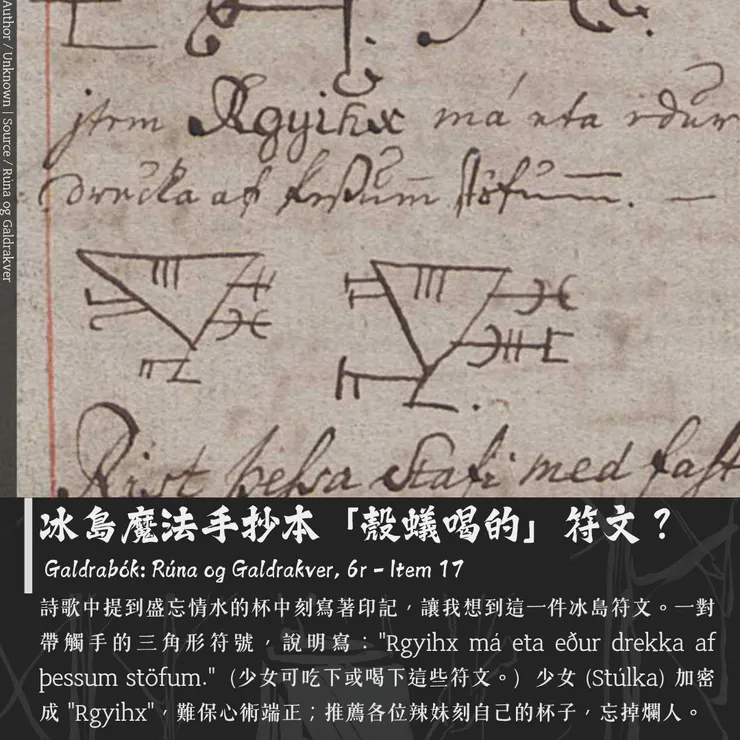 Author / Unknown | Source / Rúna og Galdrakver
jtem Rgyihx má eta eður
drecka af þeßum stöfum. —
Rist þeßa Stafi med fast
冰島魔法手抄本「殼蟻喝的」符文？
Galdrabók: Rúna og Galdrakver, 6r - Item 17
詩歌中提到盛忘情水的杯中刻寫著印記，讓我想到這一件冰島符文。一對
帶觸手的三角形符號，說明寫："Rgyihx má eta eður drekka af
þessum stöfum."（少女可吃下或喝下這些符文。）少女 (Stúlka) 加密
成 "Rgyihx"，難保心術端正；推薦各位辣妹刻自己的杯子，忘掉爛人。